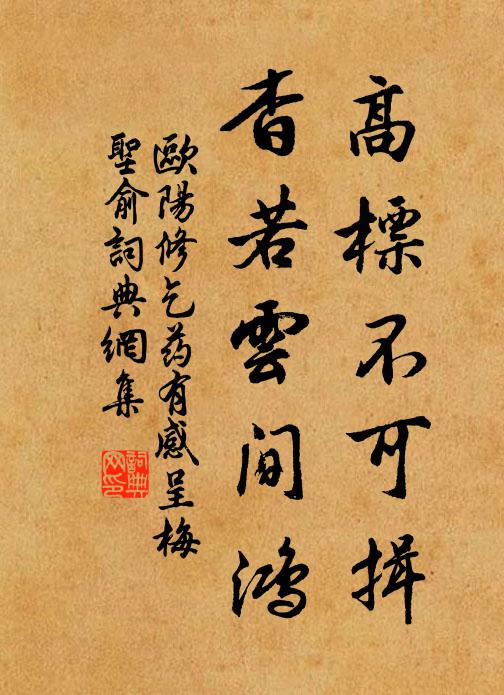 高標不可揖
杳若雲間鴻
歐陽修乞药有感呈梅
聖俞詞典網集
詞典网印